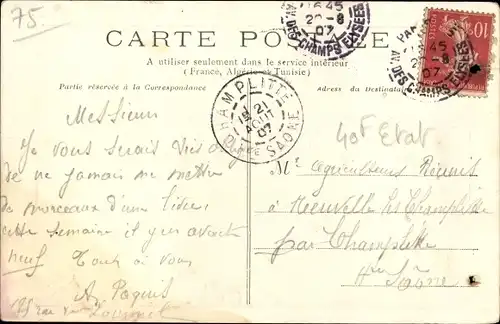 75
CARTE POSTALE
A utiliser seulement dans le service intérieur
(France, Algérie et Tunisie)
Partie réservée à la Correspondance
Adresse du Destinataire
16 45
20-8
07
AV. DES CHAMPS ELYSEES
PARIS
45
2 -8
07
AV. DES CHAMPS ELYSEES
10
CHAMPLITTE
21
AOUT
07
HTE SAONE
40F Etat
Messieurs
Je vous serais très
de ne jamais me mettre
de morceaux d'une
cette semaine il y en avait
neuf
Tout à vous
A. Paquis
rue de Lourmel
Mr Agriculteurs Réunis
à Neuvelle les Champlitte
par Champlitte
Hte Saône